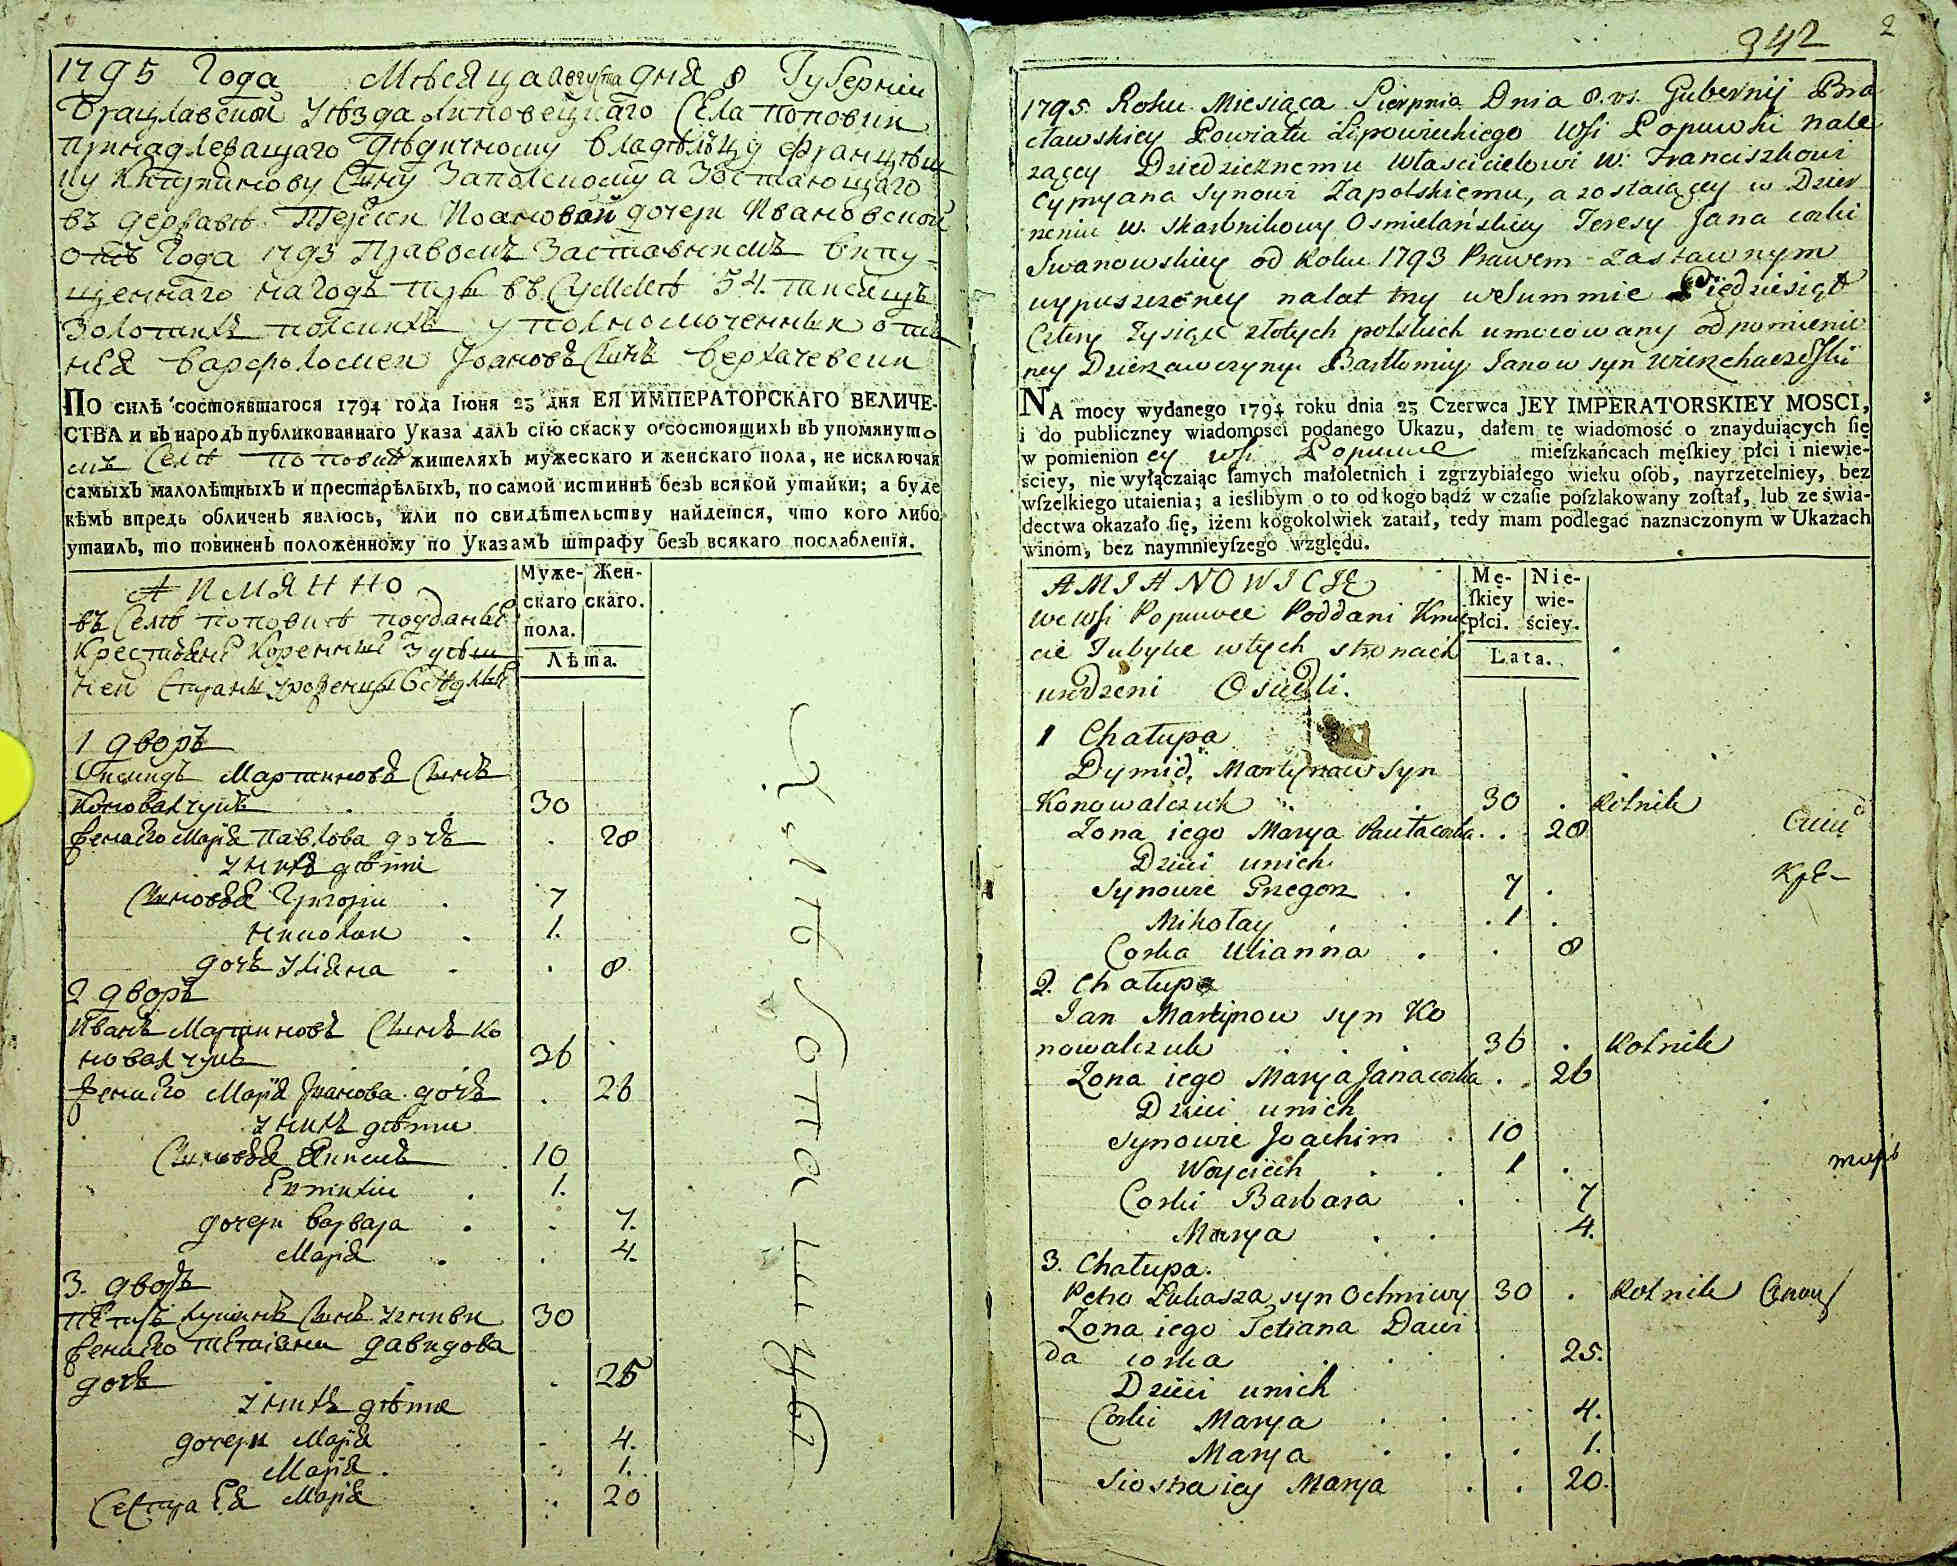 1795 Года Мѣсяца Августа дня 8 Губерніи
Брацлавской Уѣзда Липовецкаго Села Поповки
принадлежащаго Дѣдичному владѣлцу Францѣшку
Сыну Запольскому а Зостающаго
въ державѣ Терѣсы Иоановой дочери Ивановской
отъ Года 1793 Правомъ Заставнымъ випу-
щеннаго на годъ три въ Суммѣ 54. тисящъ
Золотихъ польскихъ уполномоченный отъ
нея Варфоломей Іоановъ Сынъ Вержачевски
ПО силѣ состоявшагося 1794 года Іюня 23 дня ЕЯ ИМПЕРАТОРСКАГО ВЕЛИЧЕ-
СТВА и въ народъ публикованнаго Указа далъ сію скаску о состоящихъ въ упомянуто
мъ Селѣ Поповки жителяхъ мужескаго и женскаго пола, не исключая
самыхъ малолѣтныхъ и престарѣлыхъ, по самой истиннѣ безъ всякой утайки; а буде
кѣмъ впредь обличенъ явлюсь, или по свидѣтельству найдется, что кого либо
утаилъ, то повиненъ положенному по Указамъ штрафу безъ всякаго послабленія.
А ИМЯННО
Муже-скаго пола. Жен-скаго.
въ Селѣ Поповкѣ подданые
Крестьяне коренные
Лѣта.
1 дворъ
Мартиновъ Сынъ
Коновалчукъ 30
жена его Марія Павлова дочь . 28
у нихъ дѣти
Сыновья Григорій . 7
Николай . 1.
дочь Уліяна . . 8
2 дворъ
Иванъ Мартиновъ Сынъ Ко
новалчукъ 36
жена его Марія Іванова дочь . 26
у нихъ дѣти
Сыновья Якимъ . 10
. 1.
дочери Варвара . . 7.
Марія . . 4.
3. дворъ
Петръ Лукинъ Сынъ 30
жена его Тетіяна Давидова
дочь . 25
у нихъ дѣти
дочери Марія . 4.
Марія . . 1.
Сестра Ея Марія . 20
342
2
1795 Roku Miesiąca Sierpnia Dnia 8. v.s. Gubernij Bra
cławskiey Powiatu Lipowieckiego Wsi Popuwki nale
zącey Dziedzicznemu własciciełowi W: Franciszkowi
Cypryana Synowi Zapolskiemu, a zostaiącey w Dzier
zeniu W. Skarbnikowy Osmielańskiey Teresy Jana corki
Iwanowskiey od Roku 1793 Prawem Zastawnym
wypuszczoney na lat trzy w Summie Piędziesiąt
Cztery Tysiące złotych polskich umocowany od pomienio
ney Dzierzawczyny Bartłomiy Janow syn Wierzchaczewski
NA mocy wydanego 1794 roku dnia 23 Czerwca JEY IMPERATORSKIEY MOSCI,
i do publiczney wiadomości podanego Ukazu, dałem tę wiadomość o znayduiących ſię
w pomienion ey wsi Popuwce mieſzkańcach męſkiey płci i niewie-
ściey, nie wyłączaiąc ſamych małoletnich i zgrzybiałego wieku oſób, nayrzetelniey, bez
wſzelkiego utaienia; a ieślibym o to od kogo bądź w czaſie poſzlakowany zoſtał, lub ze świa-
dectwa okazało ſię, iżem kogokolwiek zataił, tedy mam podlegać naznaczonym w Ukazach
winom, bez naymnieyſzego względu.
AMIANOWICIE
Mę-ſkiey płci. Nie-wie-ściey.
we Wsi Popuwce Poddani Kmie
cie Tubylce w tych stronach
urodzeni Osiedli.
Lata.
1 Chałupa
Dymid Martynow syn
Konowalczuk . 30 . Rolnik
Zona iego Marya Pawła corka . . 28
Dzieci u nich
Synowie Grzegorz . 7 .
Mikołay . . 1 .
Corka Ulianna . . 8
2. Chałupa
Jan Martynow syn Ko
nowalczuk . . . 36 . Rolnik
Zona iego Marya Jana corka . . 26
Dzieci u nich
Synowie Joachim . 10
Woyciech . . 1 .
Corki Barbara . . 7
Marya . . 4.
3. Chałupa.
Petro Łukasza syn Ochniwy 30 . Rolnik
Zona iego Tetiana Dawi
da corka . . . . 25.
Dzieci u nich
Corki Marya . . . 4.
Marya . . . 1.
Siostra iey Marya . . 20.